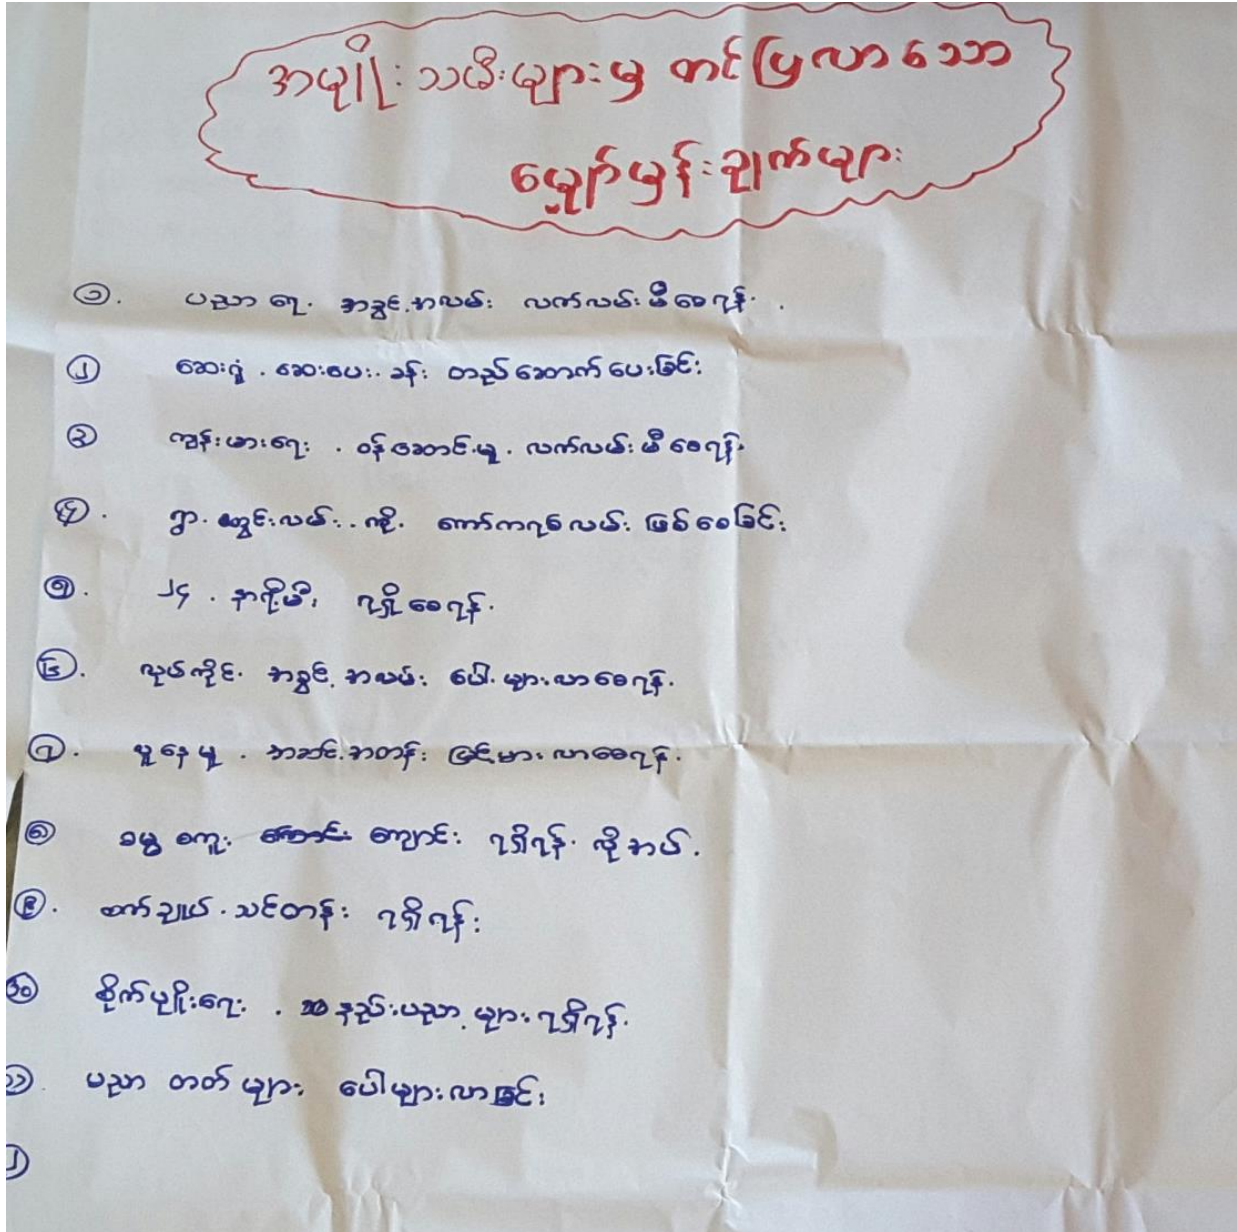 အမျိုးသမီးများမှ တင်ပြလာသော
မျှော်မှန်းချက်များ
၁. ပညာရေး အခွင့်အလမ်း လက်လမ်းမီစေရန်.
၂ ဆေးရုံ. ဆေးပေးခန်း တည်ဆောက်ပေးခြင်း
၃ ကျန်းမာရေး. ဝန်ဆောင်မှု. လက်လမ်းမီစေရန်.
၄. ရွာတွင်းလမ်းကို ကော်ကရစ်လမ်း ဖြစ်စေခြင်း
၅. ၂၄. နာရီမီး ရရှိစေရန်.
၆. လုပ်ကိုင် အခွင့်အလမ်း ပေါများလာစေရန်.
၇. လူနေမှု. အဆင့်အတန်း မြင့်မားလာစေရန်.
၈ ဓမ္မစကူး ကျောင်း ရရှိရန် လိုအပ်.
၉. စက်ချုပ်. သင်တန်း ရရှိရန်း
၁၀ စိုက်ပျိုးရေး. နည်းပညာများ ရရှိရန်.
၁၁. ပညာတတ်များ ပေါများလာခြင်း
၂